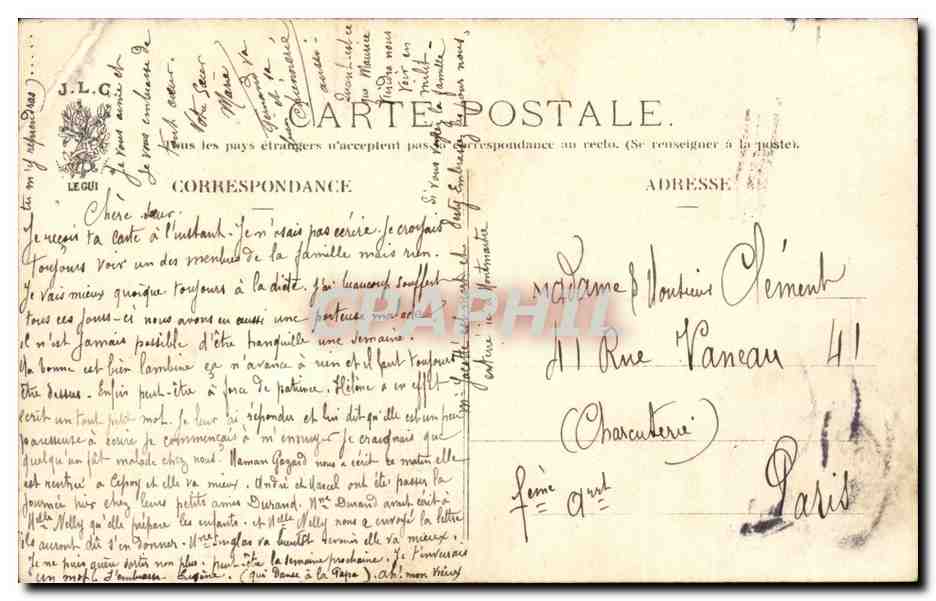 J.L.C.
LE GUI
CARTE POSTALE.
Tous les pays étrangers n'acceptent pas correspondance au recto. (Se renseigner à la poste).
CORRESPONDANCE
ADRESSE
Chère sœur.
Je reçois ta carte à l'instant. Je n'osais pas écrire. Je croyais
toujours voir un des membres de la famille mais rien.
Je vais mieux quoique toujours à la diète. J'ai beaucoup souffert
tous ces jours-ci nous avons eu aussi une porteuse malade
il n'est jamais possible d'être tranquille une semaine.
La bonne est bien lambine ça n'avance à rien et il faut toujours
être dessus. Enfin peut-être à force de patience. Hélène a en effet
écrit un tout petit mot. Je leur ai répondu et lui dit qu'elle est un peu
paresseuse à écrire je commençais à m'ennuyer. Je craignais que
quelqu'un fût malade chez nous. Maman Gozard nous a écrit ce matin elle
est rentrée à Cepoy et elle va mieux. André et Marcel ont été passer la
journée hier chez leurs petits amis Durand. Mme Durand avait écrit à
Melle Nelly qu'elle prépare les enfants. et Melle Nelly nous a envoyé la lettre
ils auront dû s'en donner. Mme va bientôt elle va mieux.
Je ne puis guère sortir non plus. peut-être la semaine prochaine. Je t'
un mot. J'embrasse Eugène. (qui danse à la Papa). ah! mon vieux
tu m'y reprendras)....
Je vous aime et
je vous embrasse de
tout cœur.
Votre Sœur
Marie
va
et
que Maurice
viendra nous
voir en
milit
Si vous voyez la famille
Embrassez les pour nous.
est mort et
enterré à Montmartre
Madame & Monsieur Clément
41 Rue Vaneau 41
(Charcuterie)
7ème arrt
Paris
CPAPHIL